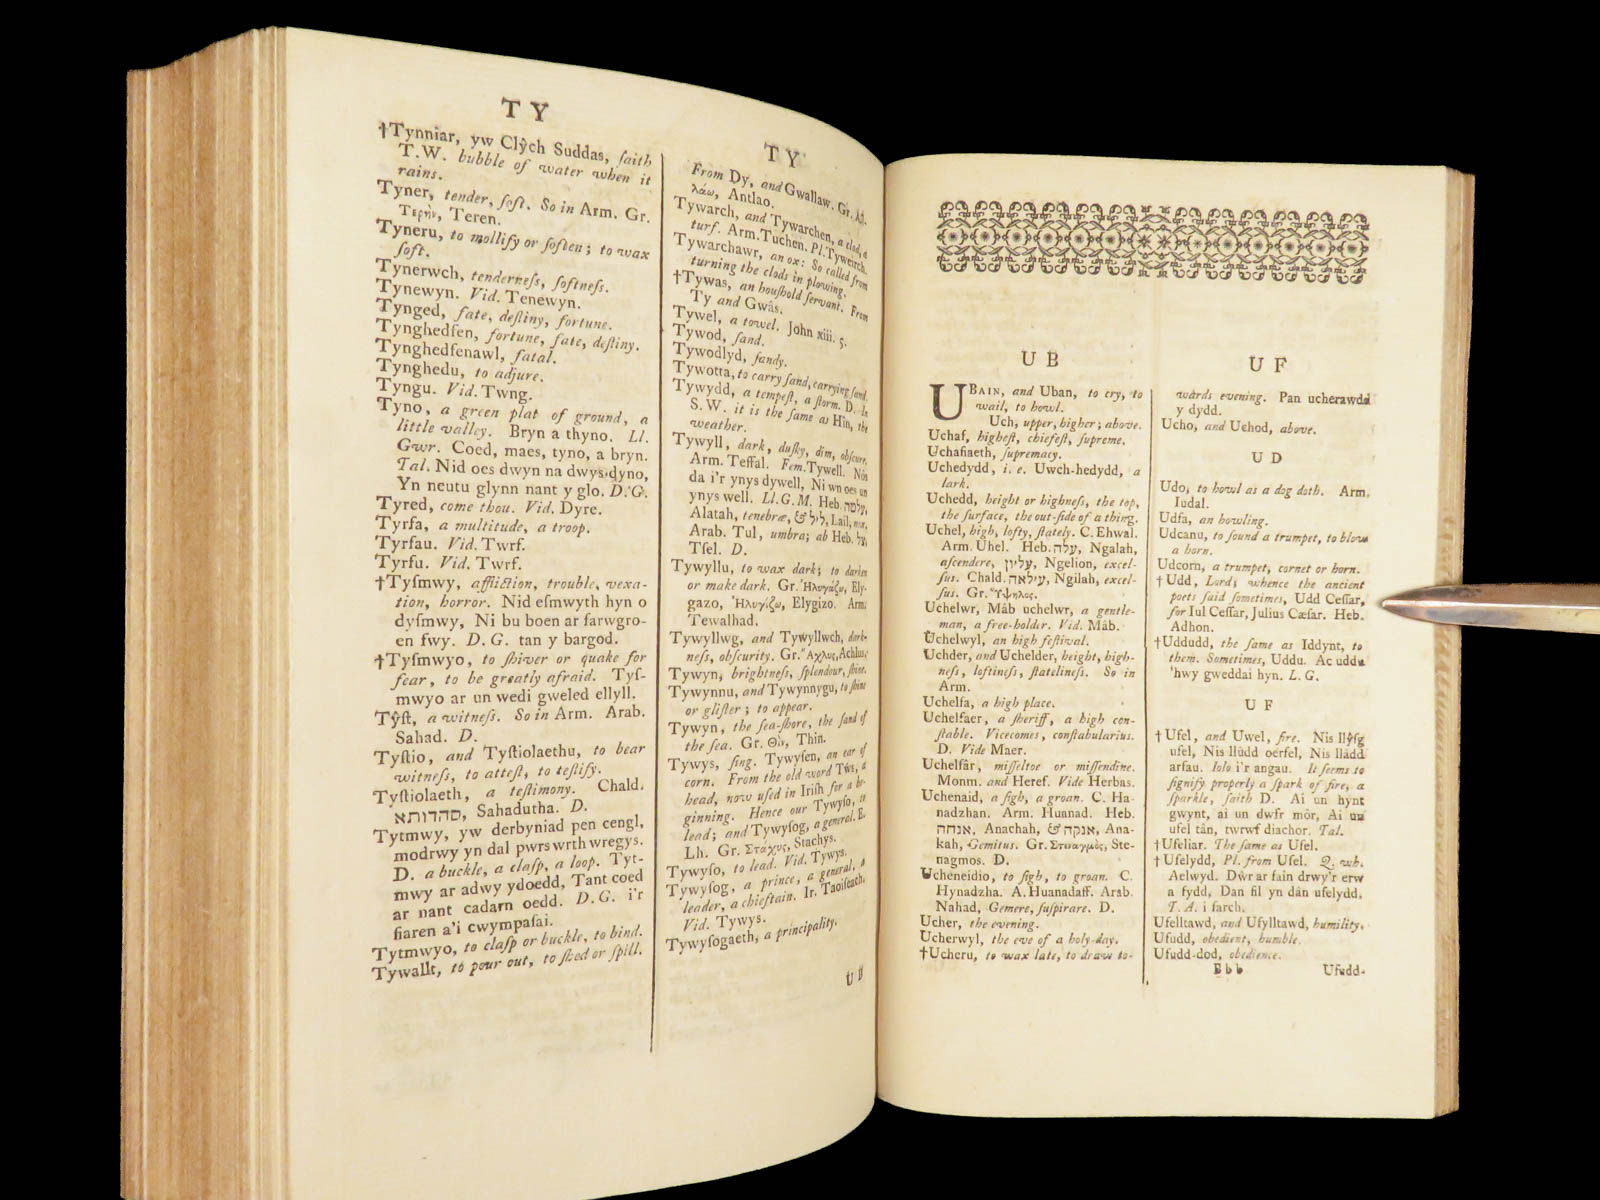 TY
†Tynniar, yw Clŷch Suddas, ſaith
T.W. bubble of water when it
rains.
Tyner, tender, ſoft. So in Arm. Gr.
Τερὴν, Teren.
Tyneru, to mollify or ſoften; to wax
ſoft.
Tynerwch, tenderneſs, ſoftneſs.
Tynewyn. Vid. Tenewyn.
Tynged, fate, deſtiny, fortune.
Tynghedfen, fortune, fate, deſtiny.
Tynghedfenawl, fatal.
Tynghedu, to adjure.
Tyngu. Vid. Twng.
Tyno, a green plat of ground, a
little valley. Bryn a thyno. Ll.
Gwr. Coed, maes, tyno, a bryn.
Tal. Nid oes dwyn na dwys dyno,
Yn neutu glynn nant y glo. D.G.
Tyred, come thou. Vid. Dyre.
Tyrfa, a multitude, a troop.
Tyrfau. Vid. Twrf.
Tyrfu. Vid. Twrf.
†Tyſmwy, affliction, trouble, vexa-
tion, horror. Nid eſmwyth hyn o
dyſmwy, Ni bu boen ar farwgro-
en fwy. D.G. tan y bargod.
†Tyſmwyo, to ſhiver or quake for
fear, to be greatly afraid. Tyſ-
mwyo ar un wedi gweled ellyll.
Tŷſt, a witneſs. So in Arm. Arab.
Sahad. D.
Tyſtio, and Tyſtiolaethu, to bear
witneſs, to atteſt, to teſtify.
Tyſtiolaeth, a teſtimony. Chald.
סהדותא, Sahadutha. D.
Tytmwy, yw derbyniad pen cengl,
modrwy yn dal pwrs wrth wregys.
D. a buckle, a claſp, a loop. Tyt-
mwy ar adwy ydoedd, Tant coed
ar nant cadarn oedd. D.G. i'r
fiaren a'i cwympaſai.
Tytmwyo, to claſp or buckle, to bind.
Tywallt, to pour out, to ſhed or ſpill.
TY
From Dy, and Gwallaw. Gr.
λάω, Antlao.
Tywarch, and Tywarchen, a clod, a
turf. Arm. Tuchen. Pl. Tyweirch.
Tywarchawr, an ox: So called from
turning the clods in plowing.
†Tywas, an houſhold ſervant. From
Ty and Gwâs.
Tywel, a towel. John xiii. 5.
Tywod, ſand.
Tywodlyd, ſandy.
Tywotta, to carry ſand, carrying ſand.
Tywydd, a tempeſt, a ſtorm. D. In
S.W. it is the ſame as Hin, the
weather.
Tywyll, dark, duſky, dim, obſcure.
Arm. Teffal. Fem. Tywell. Nôs
da i'r ynys dywell, Ni wn oes un
ynys well. Ll.G.M. Heb. עלטה,
Alatah, tenebræ, & ליל, Lail, nox,
Arab. Tul, umbra; ab Heb. צל,
Tſel. D.
Tywyllu, to wax dark; to darken
or make dark. Gr. Ἠλυγάζω, Ely-
gazo, Ἠλυγίζω, Elygizo. Arm.
Tewalhad.
Tywyllwg, and Tywyllwch, dark-
neſs, obſcurity. Gr. Ἀχλὺς, Achlus.
Tywyn, brightneſs, ſplendour, ſhine.
Tywynnu, and Tywynnygu, to ſhine
or gliſter; to appear.
Tywyn, the ſea-ſhore, the ſand of
the ſea. Gr. Θὶν, Thin.
Tywys, ſing. Tywyſen, an ear of
corn. From the old word Tŵs, a
head, now uſed in Iriſh for a be-
ginning. Hence our Tywyſo, to
lead; and Tywyſog, a general. E.
Lh. Gr. Στάχυς, Stachys.
Tywyſo, to lead. Vid. Tywys.
Tywyſog, a prince, a general, a
leader, a chieftain. Ir. Taoiſeath.
Vid. Tywys.
Tywyſogaeth, a principality.
UB
UB
UBAIN, and Uban, to cry, to
wail, to howl.
Uch, upper, higher; above.
Uchaf, higheſt, chiefeſt, ſupreme.
Uchafiaeth, ſupremacy.
Uchedydd, i. e. Uwch-hedydd, a
lark.
Uchedd, height or highneſs, the top,
the ſurface, the out-ſide of a thing.
Uchel, high, lofty, ſtately. C. Ehwal.
Arm. Uhel. Heb. עלה, Ngalah,
aſcendere, עליון, Ngelion, excel-
ſus. Chald. עילאה, Ngilah, excel-
ſus. Gr. Ὕψηλος.
Uchelwr, Mâb uchelwr, a gentle-
man, a free-holder. Vid. Mâb.
Uchelwyl, an high feſtival.
Uchder, and Uchelder, height, high-
neſs, loftineſs, ſtatelineſs. So in
Arm.
Uchelfa, a high place.
Uchelfaer, a ſheriff, a high con-
ſtable. Vicecomes, conſtabularius.
D. Vide Maer.
Uchelfâr, miſſeltoe or miſſendine.
Monm. and Heref. Vide Herbas.
Uchenaid, a ſigh, a groan. C. Ha-
nadzhan. Arm. Huanad. Heb.
אנחה, Anachah, & אנקה, Ana-
kah, Gemitus. Gr. Στεναγμὸς, Ste-
nagmos. D.
Ucheneidio, to ſigh, to groan. C.
Hynadzha. A. Huanadaff. Arab.
Nahad, Gemere, ſuſpirare. D.
Ucher, the evening.
Ucherwyl, the eve of a holy-day.
†Ucheru, to wax late, to draw to-
UF
wards evening. Pan ucherawdd
y dydd.
Ucho, and Uchod, above.
UD
Udo, to howl as a dog doth. Arm.
Iudal.
Udfa, an howling.
Udcanu, to ſound a trumpet, to blow
a horn.
Udcorn, a trumpet, cornet or horn.
†Udd, Lord; whence the ancient
poets ſaid ſometimes, Udd Ceſſar,
for Iul Ceſſar, Julius Cæſar. Heb.
Adhon.
†Uddudd, the ſame as Iddynt, to
them. Sometimes, Uddu. Ac uddu
'hwy gweddai hyn. L.G.
UF
†Ufel, and Uwel, fire. Nis llŷſg
ufel, Nis llûdd oerfel, Nis lladd
arfau. Iolo i'r angau. It ſeems to
ſignify properly a ſpark of fire, a
ſparkle, ſaith D. Ai un hynt
gwynt, ai un dwfr môr, Ai un
ufel tân, twrwf diachor. Tal.
†Ufeliar. The ſame as Ufel.
†Ufelydd, Pl. from Ufel. Q. wh.
Aelwyd. Dŵr ar fain drwy'r erw
a fydd, Dan fil yn dân ufelydd.
T. A. i farch.
Ufelltawd, and Ufylltawd, humility.
Ufudd, obedient, humble.
Ufudd-dod, obedience.
Bbb Ufudd-